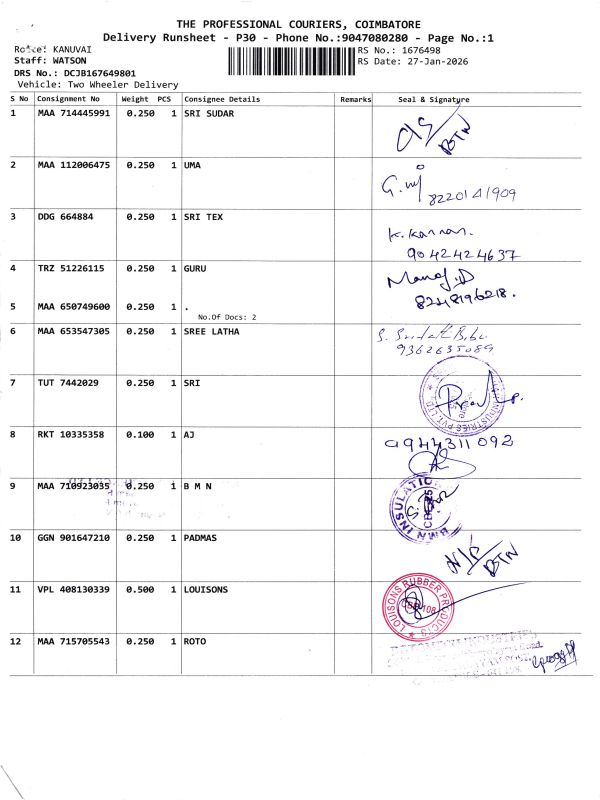 THE PROFESSIONAL COURIERS, COIMBATORE
Delivery Runsheet - P30 - Phone No.:9047080280 - Page No.:1
KANUVAI
RS No.: 1676498
Staff: WATSON
RS Date: 27-Jan-2026
DRS No.: DCJB167649801
Vehicle: Two Wheeler Delivery
S No Consignment No Weight PCS Consignee Details Remarks Seal & Signature
1 MAA 714445991 0.250 1 SRI SUDAR
BTN
2 MAA 112006475 0.250 1 UMA
8220141909
3 DDG 664884 0.250 1 SRI TEX
K. Kannan.
9042424637
4 TRZ 51226115 0.250 1 GURU
Manoj.D
8248196218.
5 MAA 650749600 0.250 1 .
No.Of Docs: 2
6 MAA 653547305 0.250 1 SREE LATHA
9362635089
7 TUT 7442029 0.250 1 SRI
INDUSTRIES PVT LTD
8 RKT 10335358 0.100 1 AJ
9944311092
9 MAA 710923035 0.250 1 B M N
BMN INSULATION
10 GGN 901647210 0.250 1 PADMAS
N/P BTN
11 VPL 408130339 0.500 1 LOUISONS
LOUISONS RUBBER PRODUCTS
12 MAA 715705543 0.250 1 ROTO
INDUSTRIES